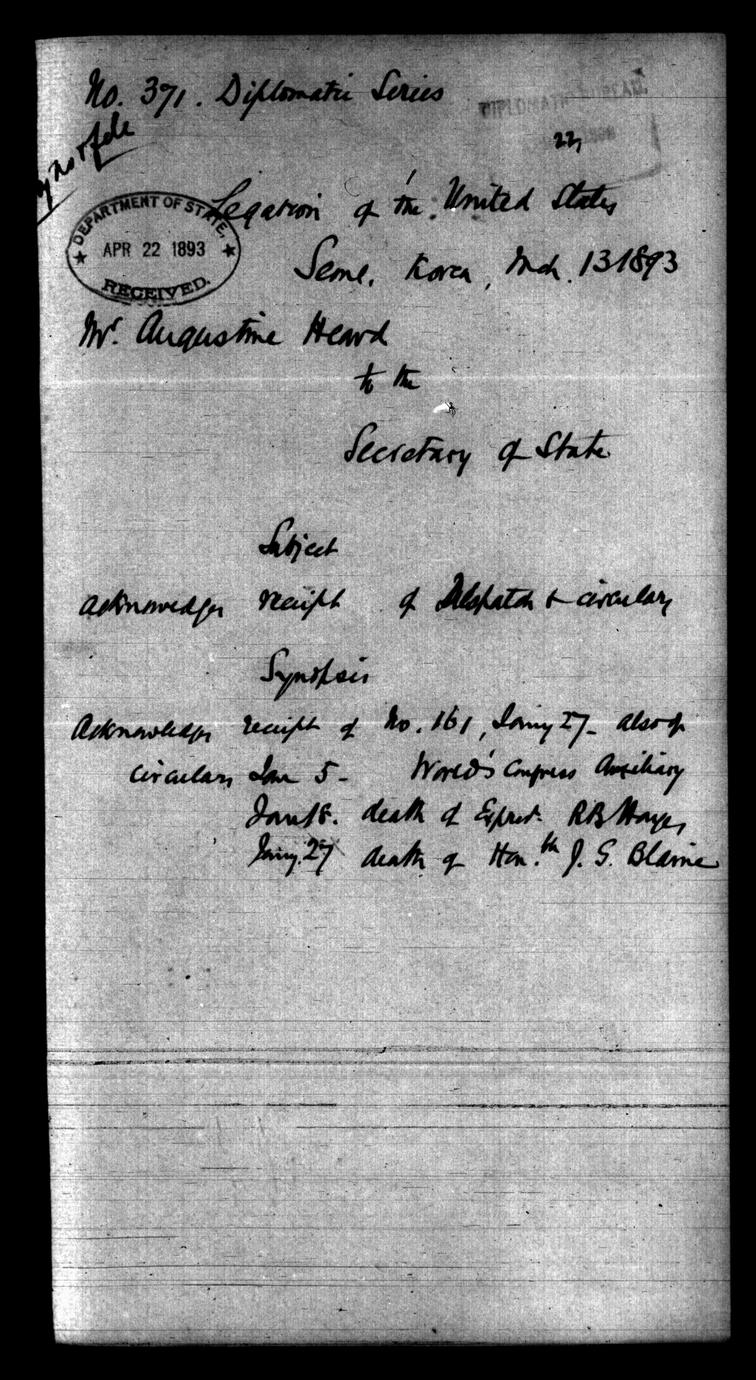 No. 371. Diplomatic Series
DIPLOMATIC BUREAU
22
file
Legation of the United States
DEPARTMENT OF STATE,
APR 22 1893
RECEIVED.
Seoul, Korea, Mch. 13 1893
Mr. Augustine Heard
to the
Secretary of State
Subject
Acknowledges receipt of Despatch & circulars
Synopsis
Acknowledges receipt of No. 161, Jany 27 - also of
circulars Jan 5 - World's Congress Auxiliary
Jan 18. death of Expres. RB Hayes
Jany. 27 death of Hon. J. G. Blaine